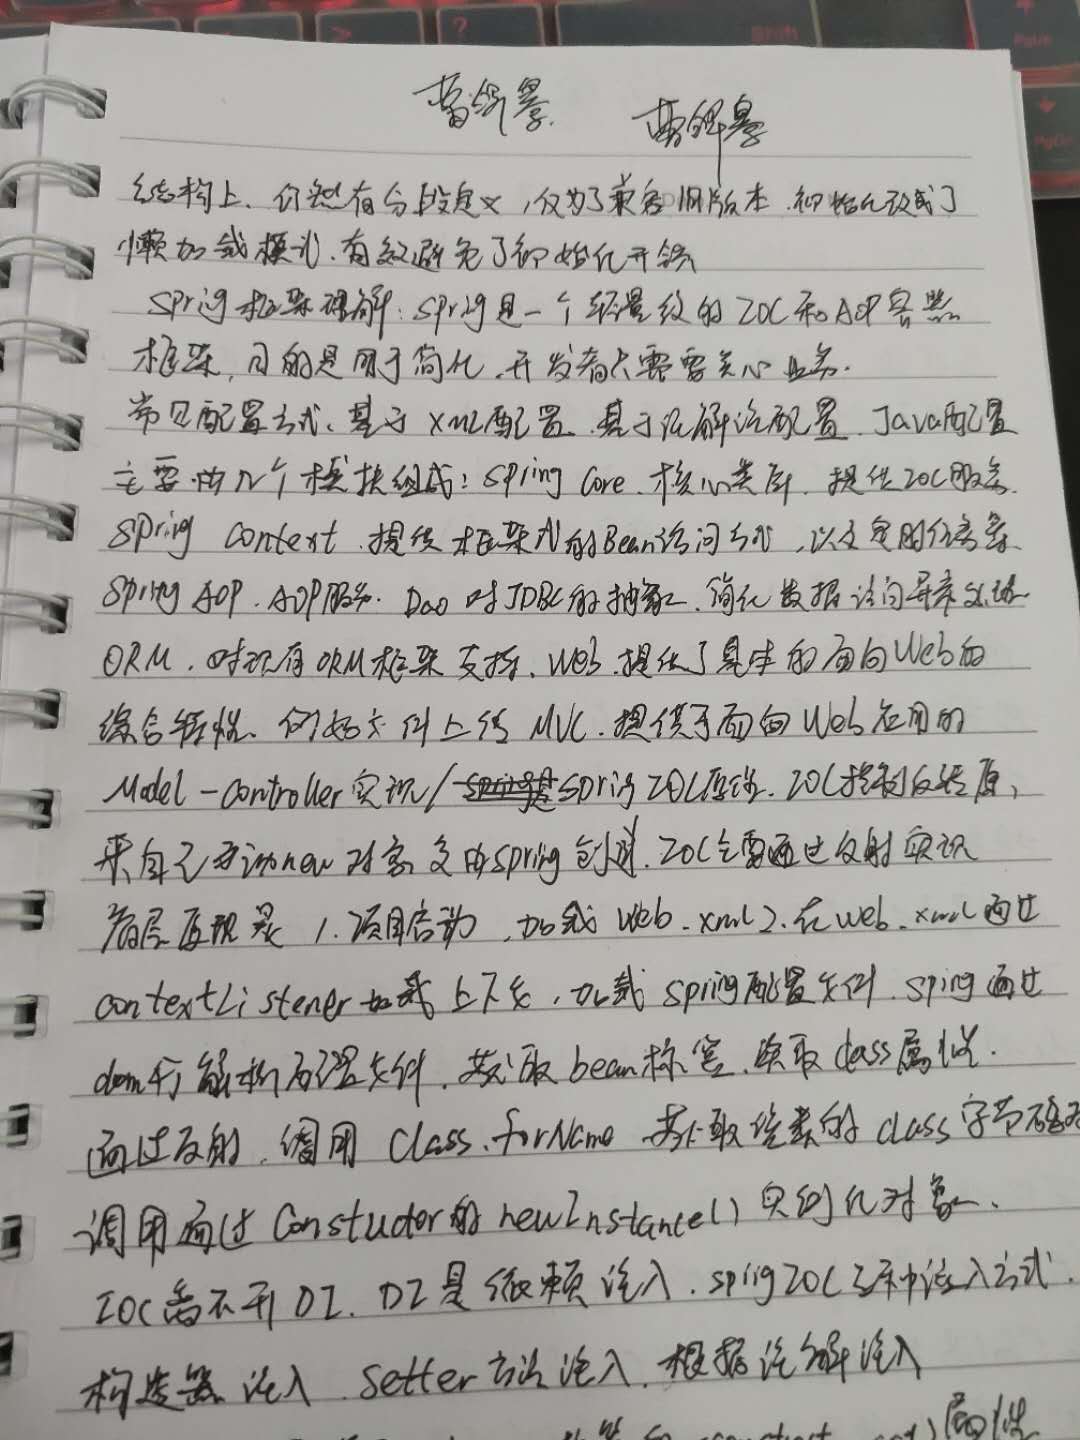 结构上、仍然有分段定义，仅为了兼容旧版本、初始化改成了
懒加载模式、有效避免了初始化开销
Spring框架理解：Spring是一个轻量级的IOC和AOP容器
框架，目的是用于简化、开发者只需要关心业务.
常见配置方式、基于XML配置、基于注解配置、Java配置
主要由几个模块组成：Spring Core、核心类库、提供IOC服务.
Spring Context、提供框架式的Bean访问方式、以及定时任务等.
Spring AOP、AOP服务. Dao 对JDBC的抽象、简化数据访问异常处理
ORM、对现有ORM框架支持、Web、提供了基本的面向Web的
综合特性、例如文件上传 MVC、提供了面向Web应用的
Model-Controller实现/ Spring IOC、IOC控制反转 原、
来自己手动new对象交由Spring创建、IOC主要通过反射实现
1.项目启动、加载 Web.xml 2.在web.xml通过
contextListener加载上下文、加载Spring配置文件、Sping通过
dom4j解析配置文件、获取bean标签、读取class属性.
通过反射、调用Class.forName 获取 的class字节码
调用通过Constuctor的newInstance()实例化对象、
IOC离不开DI、DI是依赖注入、spiigIOC三种注入方式.
构造器注入、Setter方法注入、根据注解注入
属性